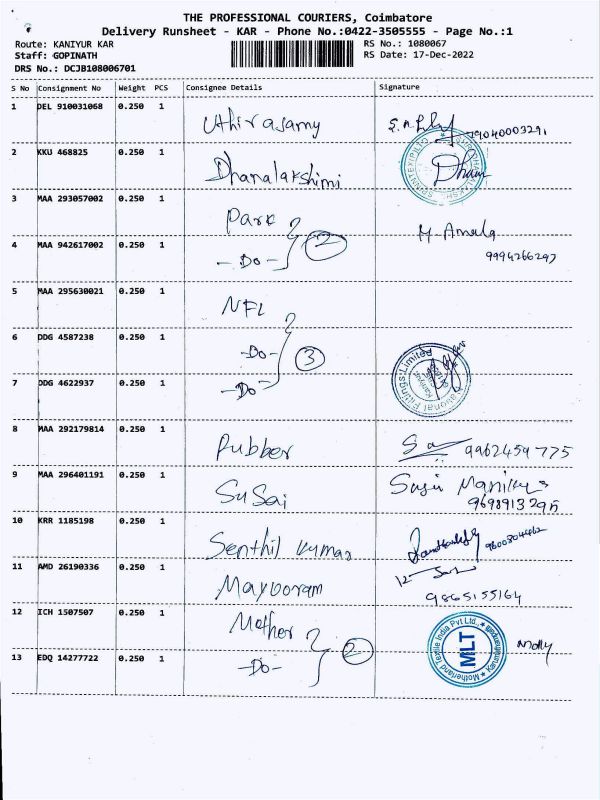 THE PROFESSIONAL COURIERS, Coimbatore
Delivery Runsheet - KAR - Phone No.:0422-3505555 - Page No.:1
Route: KANIYUR KAR
RS No.: 1080067
Staff: GOPINATH
RS Date: 17-Dec-2022
DRS No.: DCJB108006701
S No Consignment No Weight PCS Consignee Details Signature
1 DEL 910031068 0.250 1 Uthirasamy 79040003291
2 KKU 468825 0.250 1 Dhanalakshimi
3 MAA 293057002 0.250 1 Park M Amala
4 MAA 942617002 0.250 1 -Do- 2 9994266297
5 MAA 295630021 0.250 1 NFL
6 DDG 4587238 0.250 1 -Do- 3
7 DDG 4622937 0.250 1 -Do-
8 MAA 292179814 0.250 1 Rubber 9962459775
9 MAA 296401191 0.250 1 SuSai 9698913295
10 KRR 1185198 0.250 1 Senthil Kumar 9600804462
11 AMD 26190336 0.250 1 Mayooram 9865155164
12 ICH 1507507 0.250 1 Mother Molly
13 EDQ 14277722 0.250 1 -Do- 2
Motherland Textile India Pvt Ltd.,
MLT